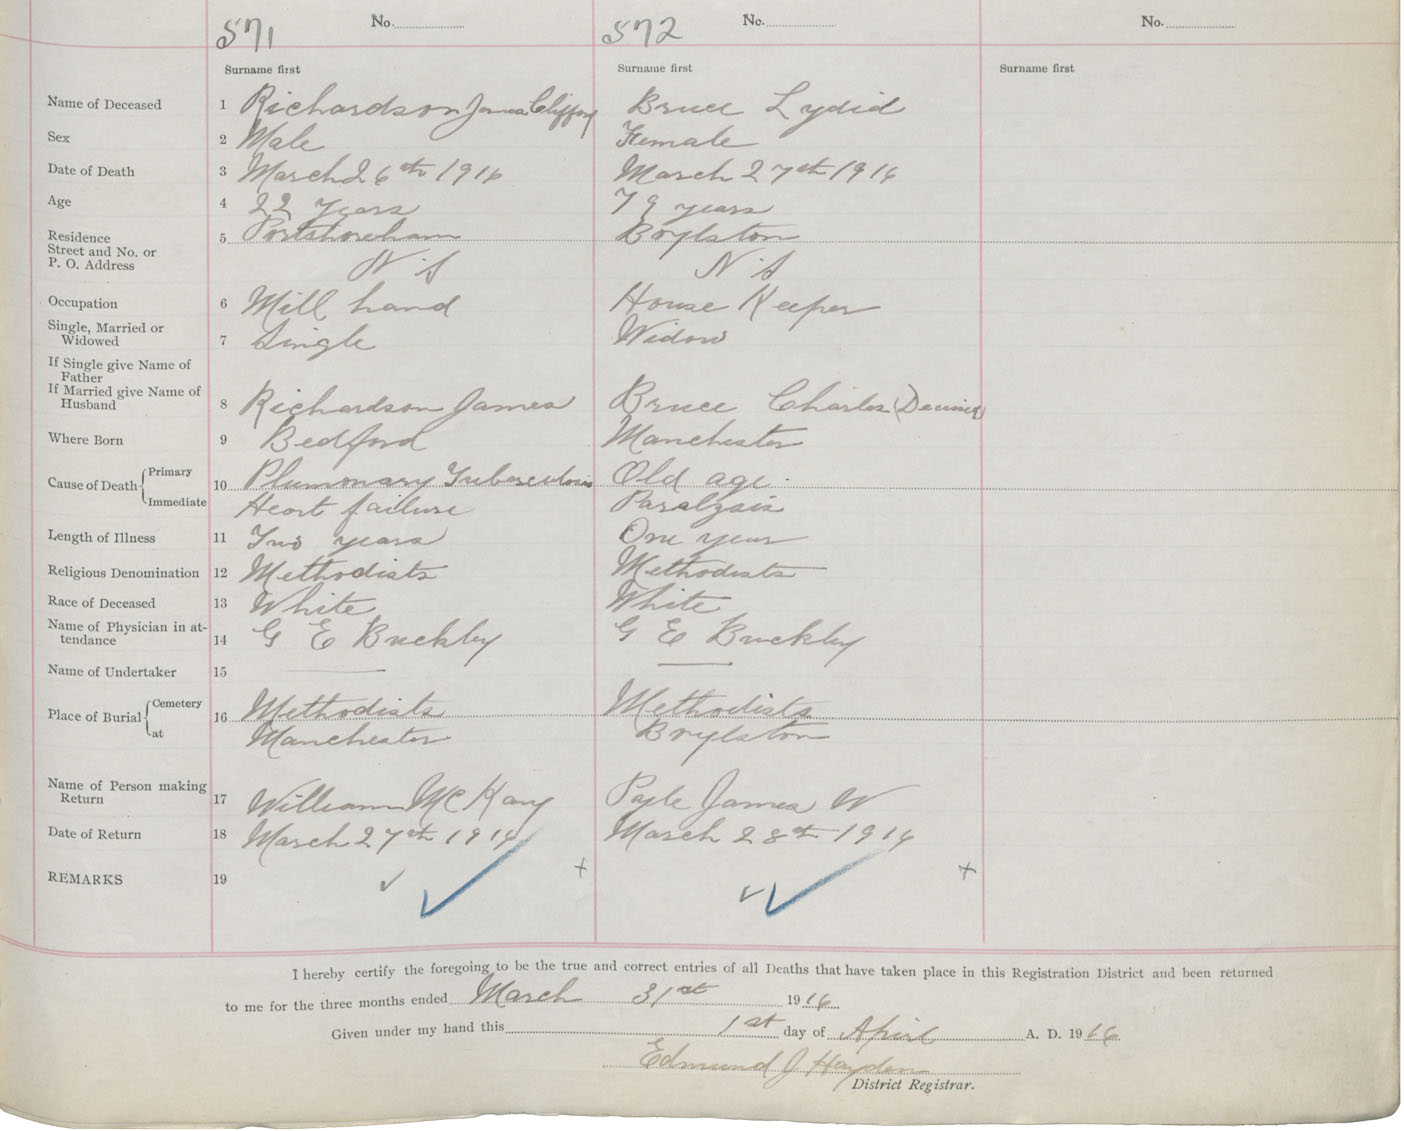 571 No. 572 No. No.
Surname first Surname first Surname first
Name of Deceased 1 Richardson James Clifford Bruce Lydid
Sex 2 Male Female
Date of Death 3 March 26th 1916 March 27th 1916
Age 4 22 years 79 years
Residence 5 Portshoreham Boylston
Street and No. or
P. O. Address N S N S
Occupation 6 Mill hand House Keeper
Single, Married or
Widowed 7 Single Widow
If Single give Name of
Father
If Married give Name of
Husband 8 Richardson James Bruce Charles
Where Born 9 Bedford Manchester
Cause of Death Primary 10 Plumonary Tuberculosis Old age.
Immediate Heart failure Paralysis
Length of Illness 11 Two years One year
Religious Denomination 12 Methodists Methodists
Race of Deceased 13 White White
Name of Physician in at-
tendance 14 G E Buckley G E Buckley
Name of Undertaker 15
Place of Burial Cemetery 16 Methodists Methodists
at Manchester Boylston
Name of Person making
Return 17 William McKay James W
Date of Return 18 March 27th 1916 March 28th 1916
REMARKS 19
I hereby certify the foregoing to be the true and correct entries of all Deaths that have taken place in this Registration District and been returned
to me for the three months ended March 31st 1916
Given under my hand this 1st day of April A. D. 1916
Edmund J Hayden
District Registrar.